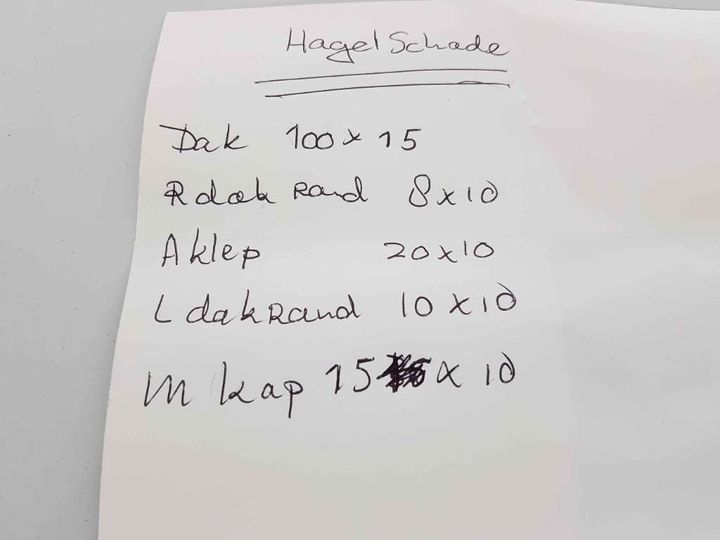 Hagel Schade
Dak 100 x 15
R dak Rand 8 x 10
A klep 20 x 10
L dak Rand 10 x 10
M kap 15 x 10